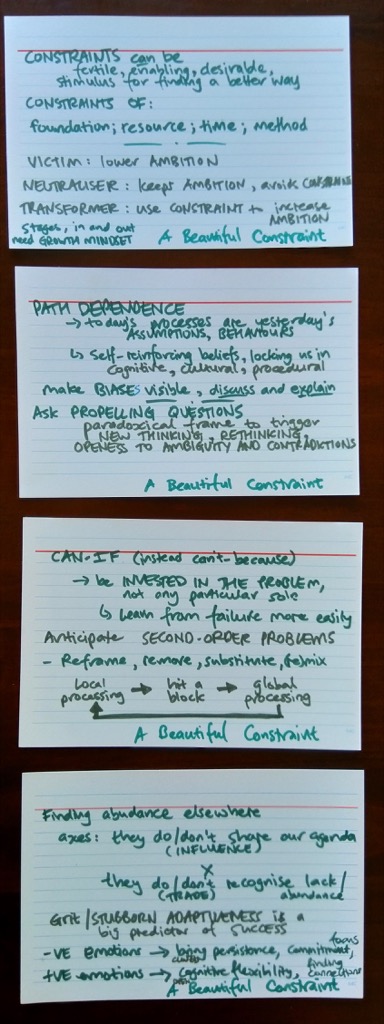 CONSTRAINTS can be
fertile, enabling, desirable,
stimulus for finding a better way
CONSTRAINTS OF:
foundation; resource; time; method
VICTIM: lower AMBITION
NEUTRALISER: keeps AMBITION, avoids CONSTRAINT
TRANSFORMER: use CONSTRAINT to increase
AMBITION
Stages, in and out
need GROWTH MINDSET
A Beautiful Constraint
PATH DEPENDENCE
→ today's processes are yesterday's
ASSUMPTIONS, BEHAVIOURS
↳ self-reinforcing beliefs, locking us in
cognitive, cultural, procedural
make BIASES visible, discuss and explain
Ask PROPELLING QUESTIONS
paradoxical frame to trigger
NEW THINKING, RETHINKING,
OPENESS TO AMBIGUITY AND CONTRADICTIONS
A Beautiful Constraint
CAN-IF (instead can't-because)
→ be INVESTED IN THE PROBLEM,
not any particular sole
↳ Learn from failure more easily
Anticipate SECOND-ORDER PROBLEMS
- Reframe, remove, substitute, (re)mix
Local processing → hit a block → global processing
A Beautiful Constraint
Finding abundance elsewhere
axes: they do/don't share our agenda
(INFLUENCE)
X
they do/don't recognise lack/
(TRADE) abundance
Grit/STUBBORN ADAPTIVENESS is a
big predictor of SUCCESS
-VE emotions → bring persistance, commitment, focus
+VE emotions → cognitive flexibility, finding connections
A Beautiful Constraint